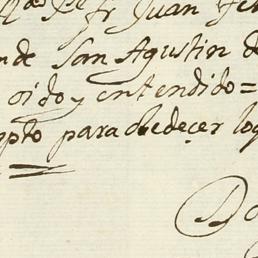 Fr Juan Fe
nde San Agustin de
oido y entendido=
pto para obedeçer lo
Do